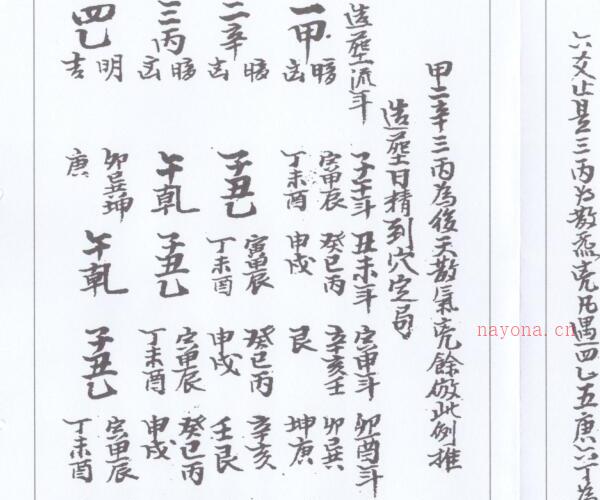 六爻止是三丙为散炁亮凡遇四乙五庚六丁為
甲二辛三丙為後天散氣亮餘倣此例推
造葬日精到穴定局
造葬流年 子午年 丑未年 寅申年 卯酉年
一甲 暗凶 寅甲辰丁未酉 癸巳丙申戌 辛亥壬艮 卯巽坤庚
二辛 暗凶 子丑乙 寅甲辰丁未酉 癸巳丙申戌 辛亥壬艮
三丙 暗凶 午乾 子丑乙 寅甲辰丁未酉 癸巳丙申戌
四乙 明吉 卯巽坤庚 午乾 子丑乙 寅甲辰丁未酉
nayona.cn